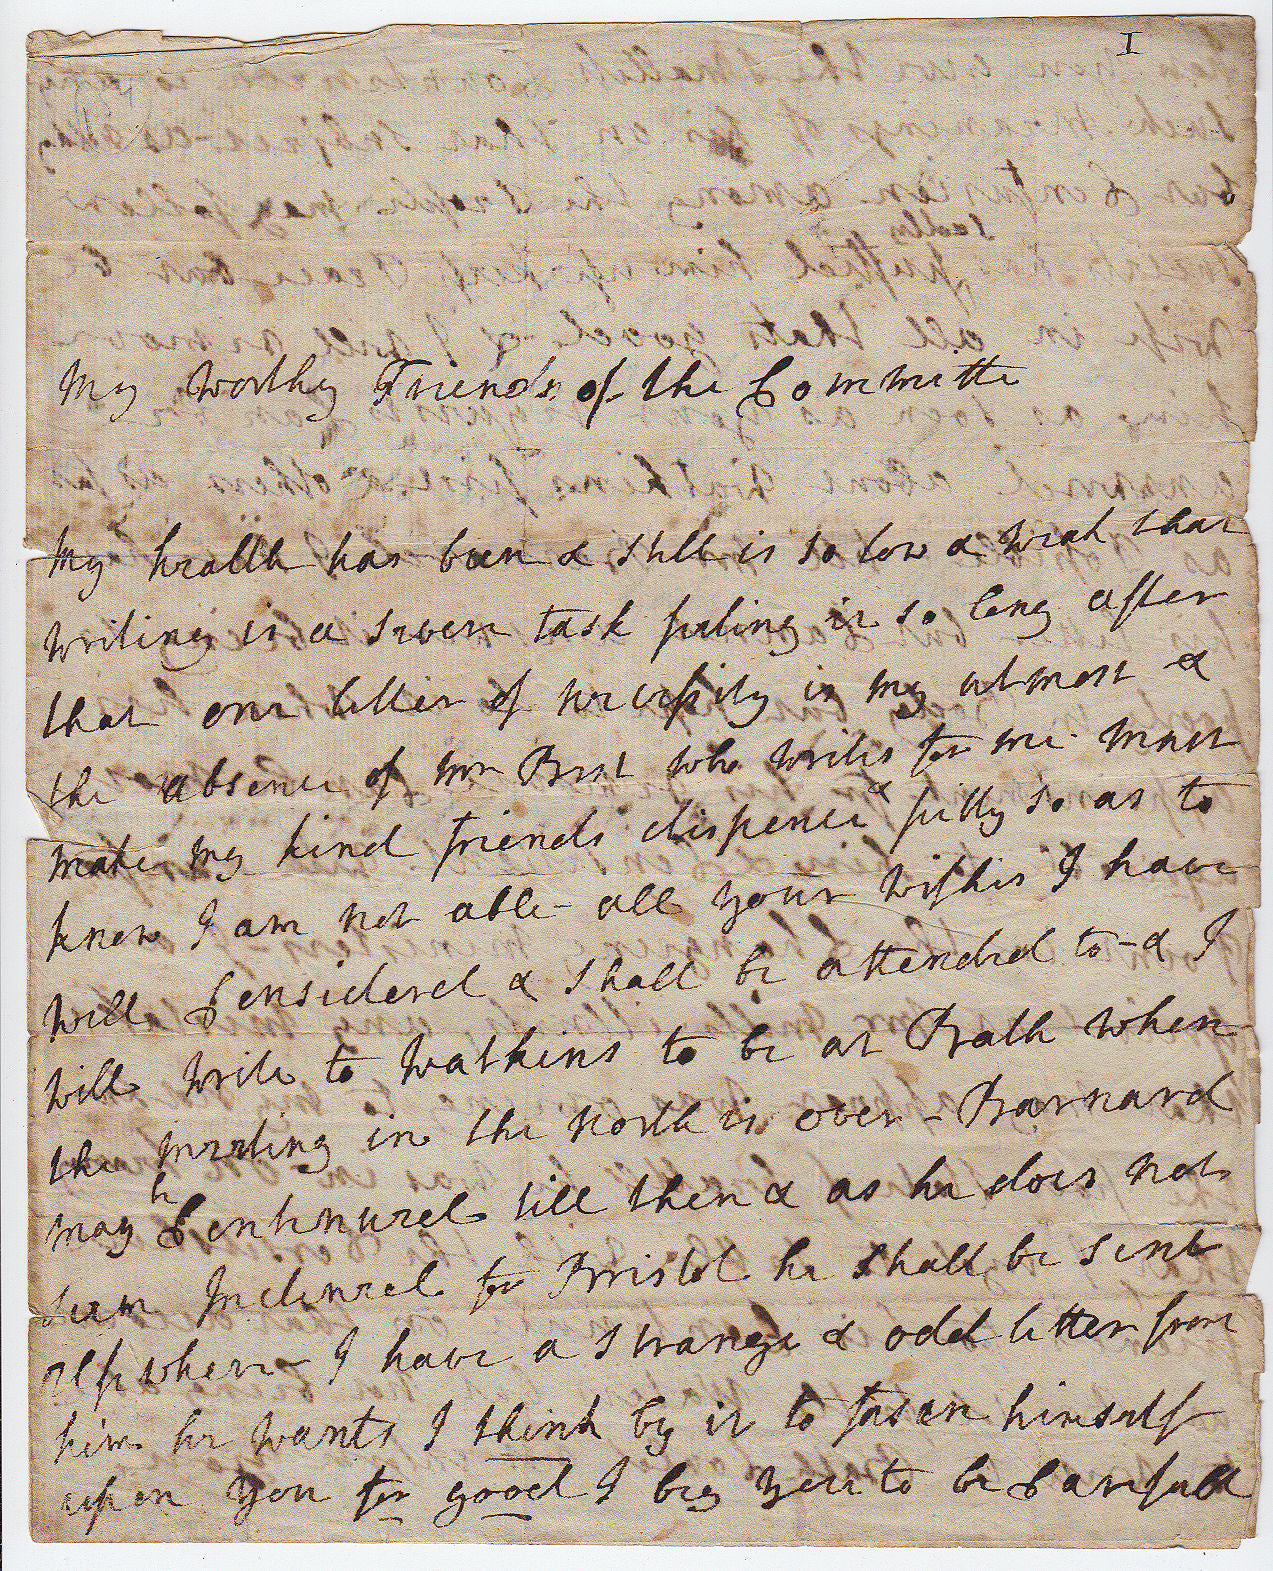 I
My Worthy Friends of the Committe
My health has been & still is so low & weak that
writing is a severe task feeling it so long after
that one letter of necessity is my utmost &
the absence of Mr Best who writes for me must
make my kind friends dispence & pitty so as to
know I am not able - all your wishes I have
well Considered & shall be attended to - & I
will write to Watkins to be at Bath when
the meeting in the North is over - Barnard
may be Continued till then & as he does not
seem Inclined for Bristol he shall be sent
elsewhere I have a strange & odd letter from
him he wants I think by it to fasen himself
upon you for good I beg you to be Carefull